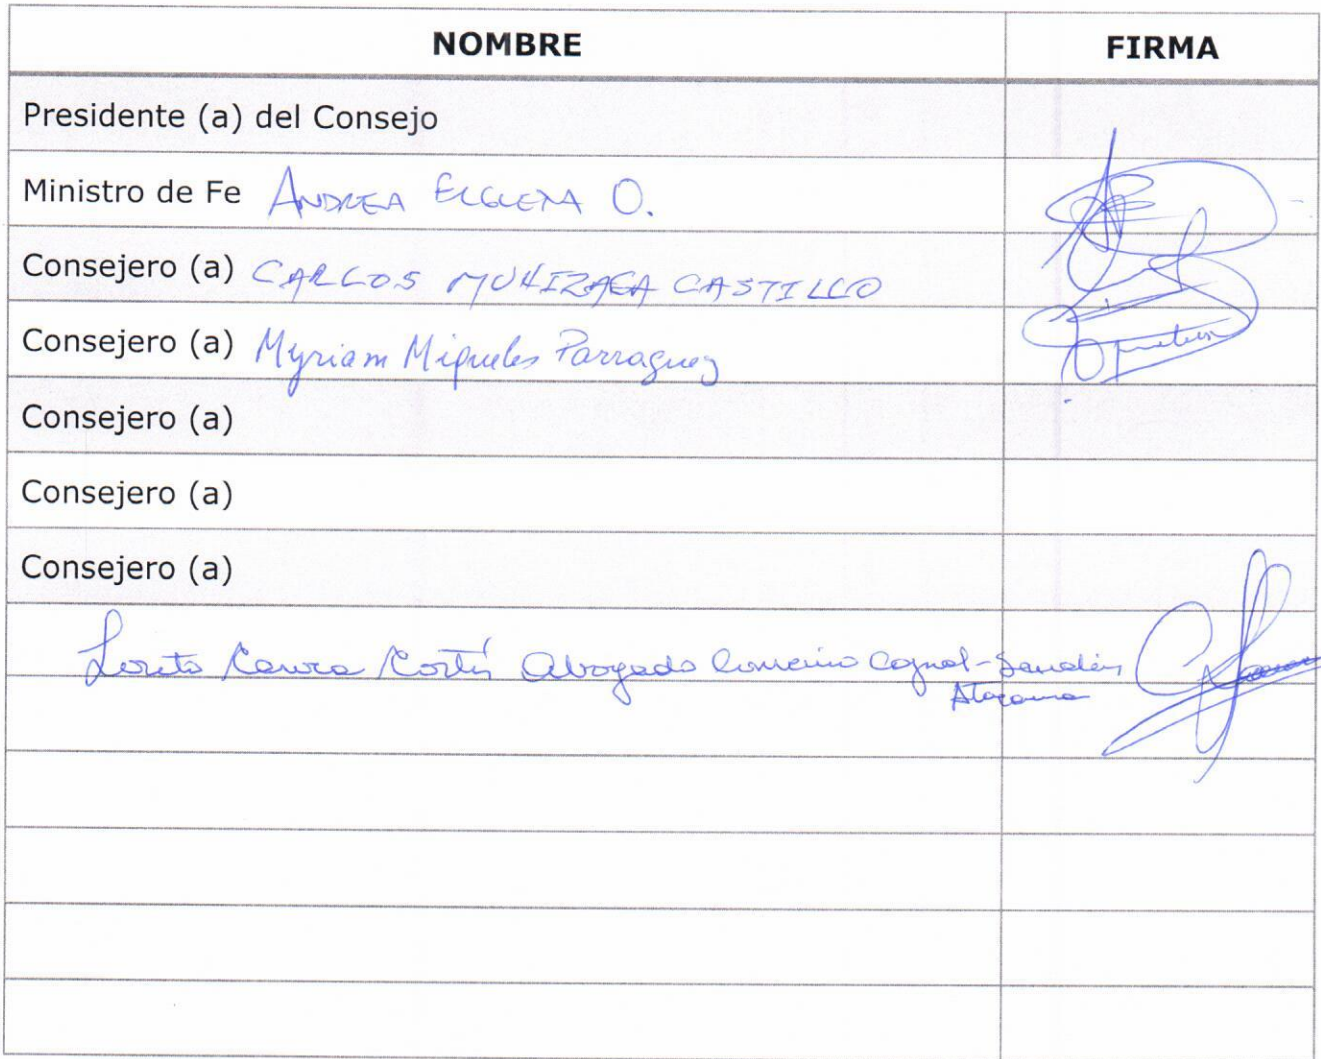 NOMBRE FIRMA
Presidente (a) del Consejo
Ministro de Fe ANDREA ELGUETA O.
Consejero (a) CARLOS MUNIZAGA CASTILLO
Consejero (a) Myriam Miqueles Parraguez
Consejero (a)
Consejero (a)
Consejero (a)
Loreto Cortés Abogado
Atacama